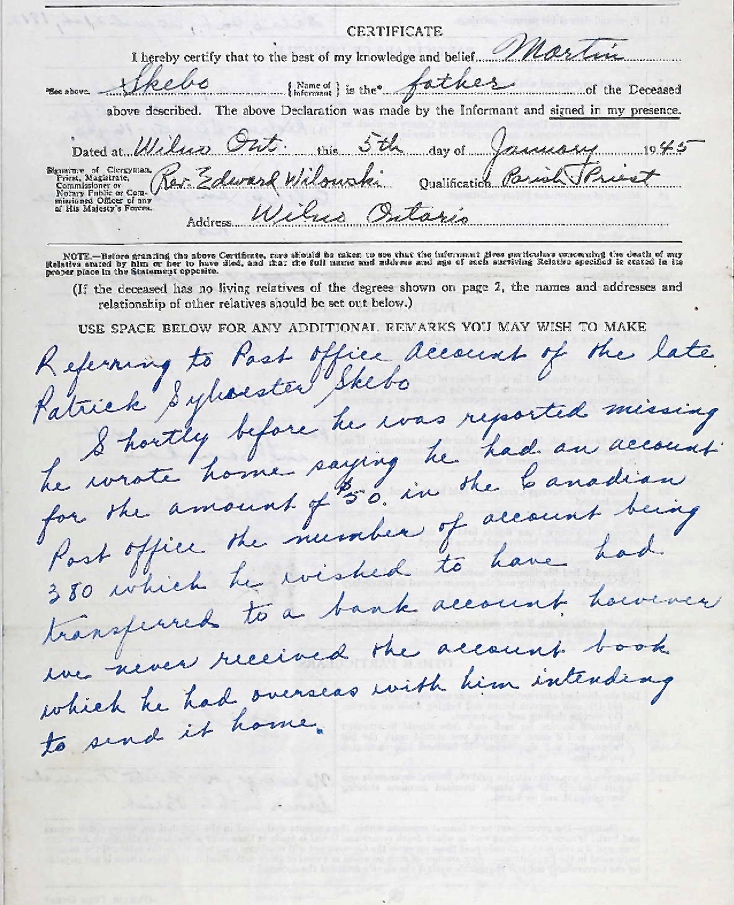 CERTIFICATE
I hereby certify that to the best of my knowledge and belief Martin
*See above. Skebo {Name of Informant} is the* father of the Deceased
above described. The above Declaration was made by the Informant and signed in my presence.
Dated at Wilno Ont. this 5th day of January 1945
Signature of Clergyman, Priest, Magistrate, Commissioner or Notary Public or Commissioned Officer of any of His Majesty's Forces. Rev. Edward Wilowski Qualification Parish Priest
Address Wilno Ontario
NOTE.—Before granting the above Certificate, care should be taken to see that the informant gives particulars concerning the death of any
Relative stated by him or her to have died, and that the full name and address and age of each surviving Relative specified is stated in its
proper place in the Statement opposite.
(If the deceased has no living relatives of the degrees shown on page 2, the names and addresses and
relationship of other relatives should be set out below.)
USE SPACE BELOW FOR ANY ADDITIONAL REMARKS YOU MAY WISH TO MAKE
Referring to Post office Account of the late
Patrick Sylvester Skebo
Shortly before he was reported missing
he wrote home saying he had an account
for the amount of $50. in the Canadian
Post office the number of account being
380 which he wished to have had
transferred to a bank account however
we never received the account book
which he had overseas with him intending
to send it home.